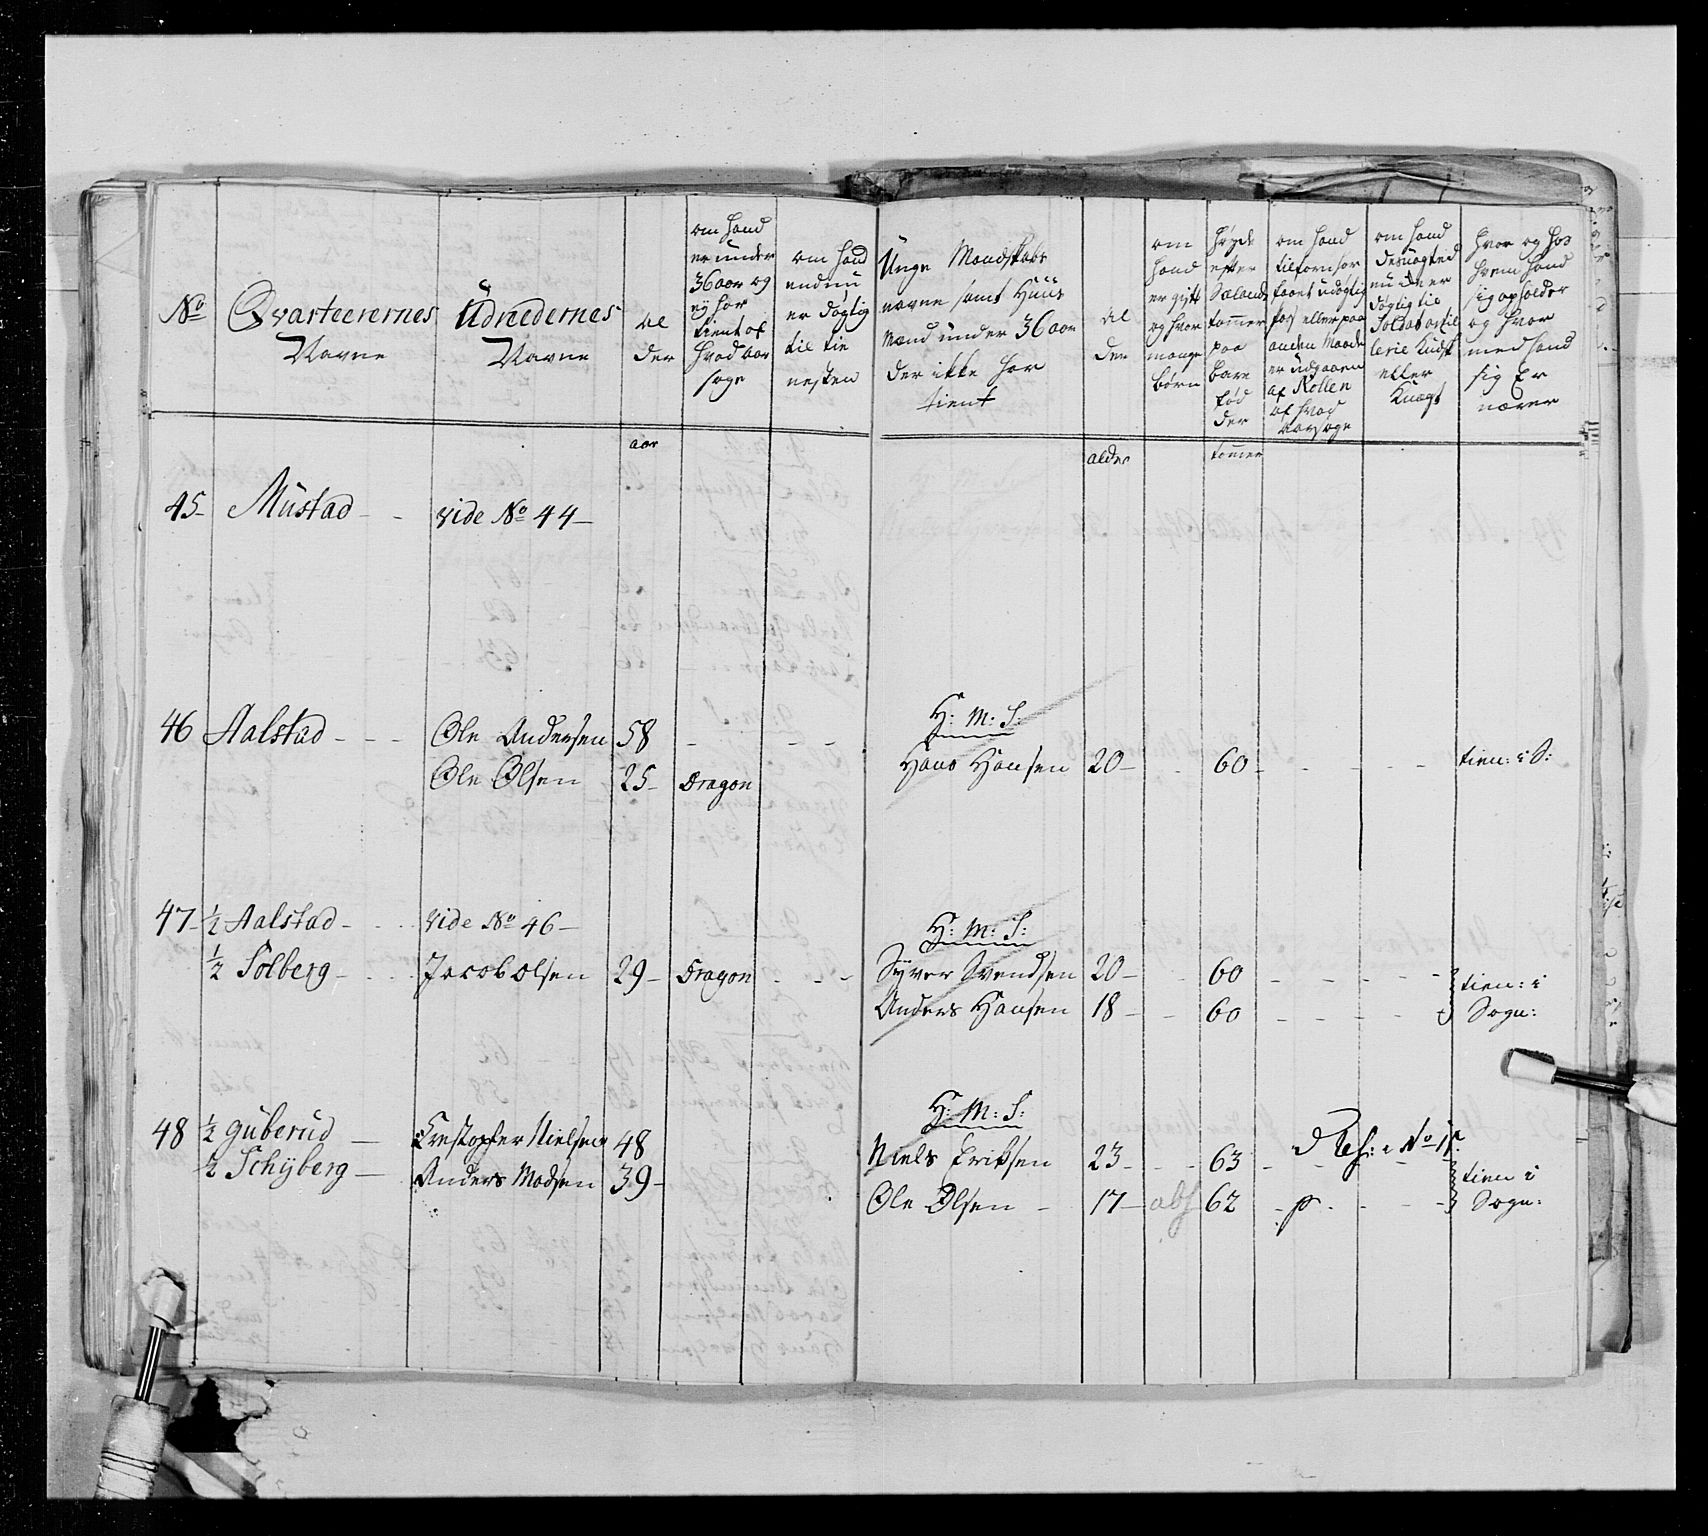 No
Qvarteerernes
Navne
Udrædernes
Navne
al
der
om hand
er under
36 aar og
ej har
tient af
hvad aar
sage
om hand
endnu
er dögtig
til tie
nesten
Unge Mandskabs
navne samt Huus
mænd under 36 aar
der ikke har
tient
al
der
om
hand
er gift
og hvor
mange
börn
höyde
efter
Siælands
tommer
paa
bare
fød
der
om hand
tilforn har
faaet udögtig
Pas eller paa
anden Maade
er udgaaen
af Rollen
af hvad
aarsage
om hand
desuagted
nu er
döglig til
Soldat artil
lerie Kudsk
eller
Knægt
hvor og hos
hvem hand
sig opholder
og hvor
med hand
sig Er
nærer
aar
alder
tommer
45- Mustad - - vide No 44-
46 Aalstad - - - Ole Andersen 58 - - - H: M: S:
Ole Olsen - 25- Dragon Hans Hansen 20- - 60- - - - - tien: i S:
47- ½ Aalstad - - - vide No 46- H: M: S:
½ Solberg - - - Jacob olsen 29- Dragon - - - Syver Svendsen 20- - 60 - - - - tien: i
Anders Hansen 18- - 60 - - - - Sogn:
48 ½ Guberud - Crestopher Nielsen 48 H: M: S:
½ Schyberg - Anders Madsen 39- Niels Eriksen 23- - - 63 - No 15. tien i
Ole Olsen - 17- abs 62 - p - - - Sogn: